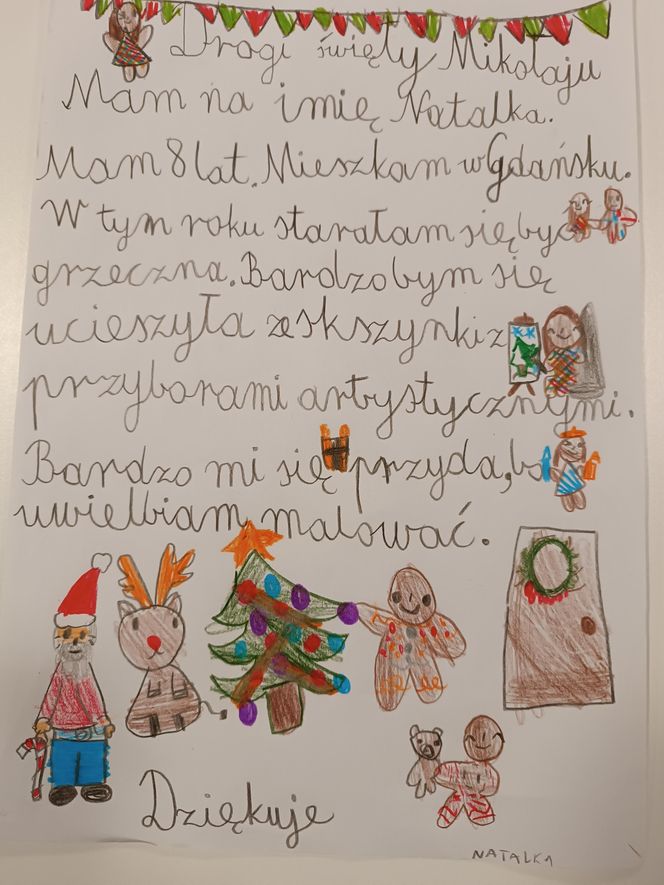 Drogi święty Mikołaju
Mam na imię Natalka.
Mam 8 lat. Mieszkam w Gdańsku.
W tym roku starałam się być
grzeczna. Bardzo bym się
ucieszyła ze skszynki z
przyborami artystycznymi.
Bardzo mi się przyda, bo
uwielbiam malować.
Dziękuje
NATALKA